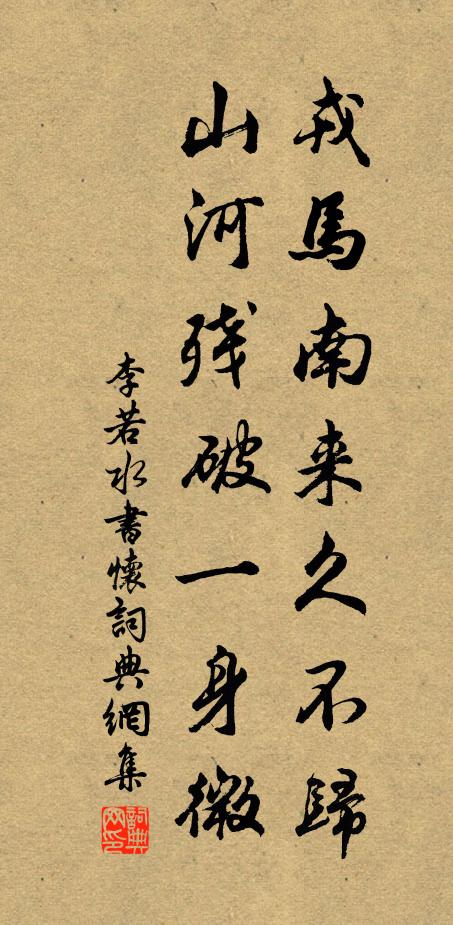 戎馬南来久不歸
山河残破一身微
李若水書懷詞典網集
詞典網印